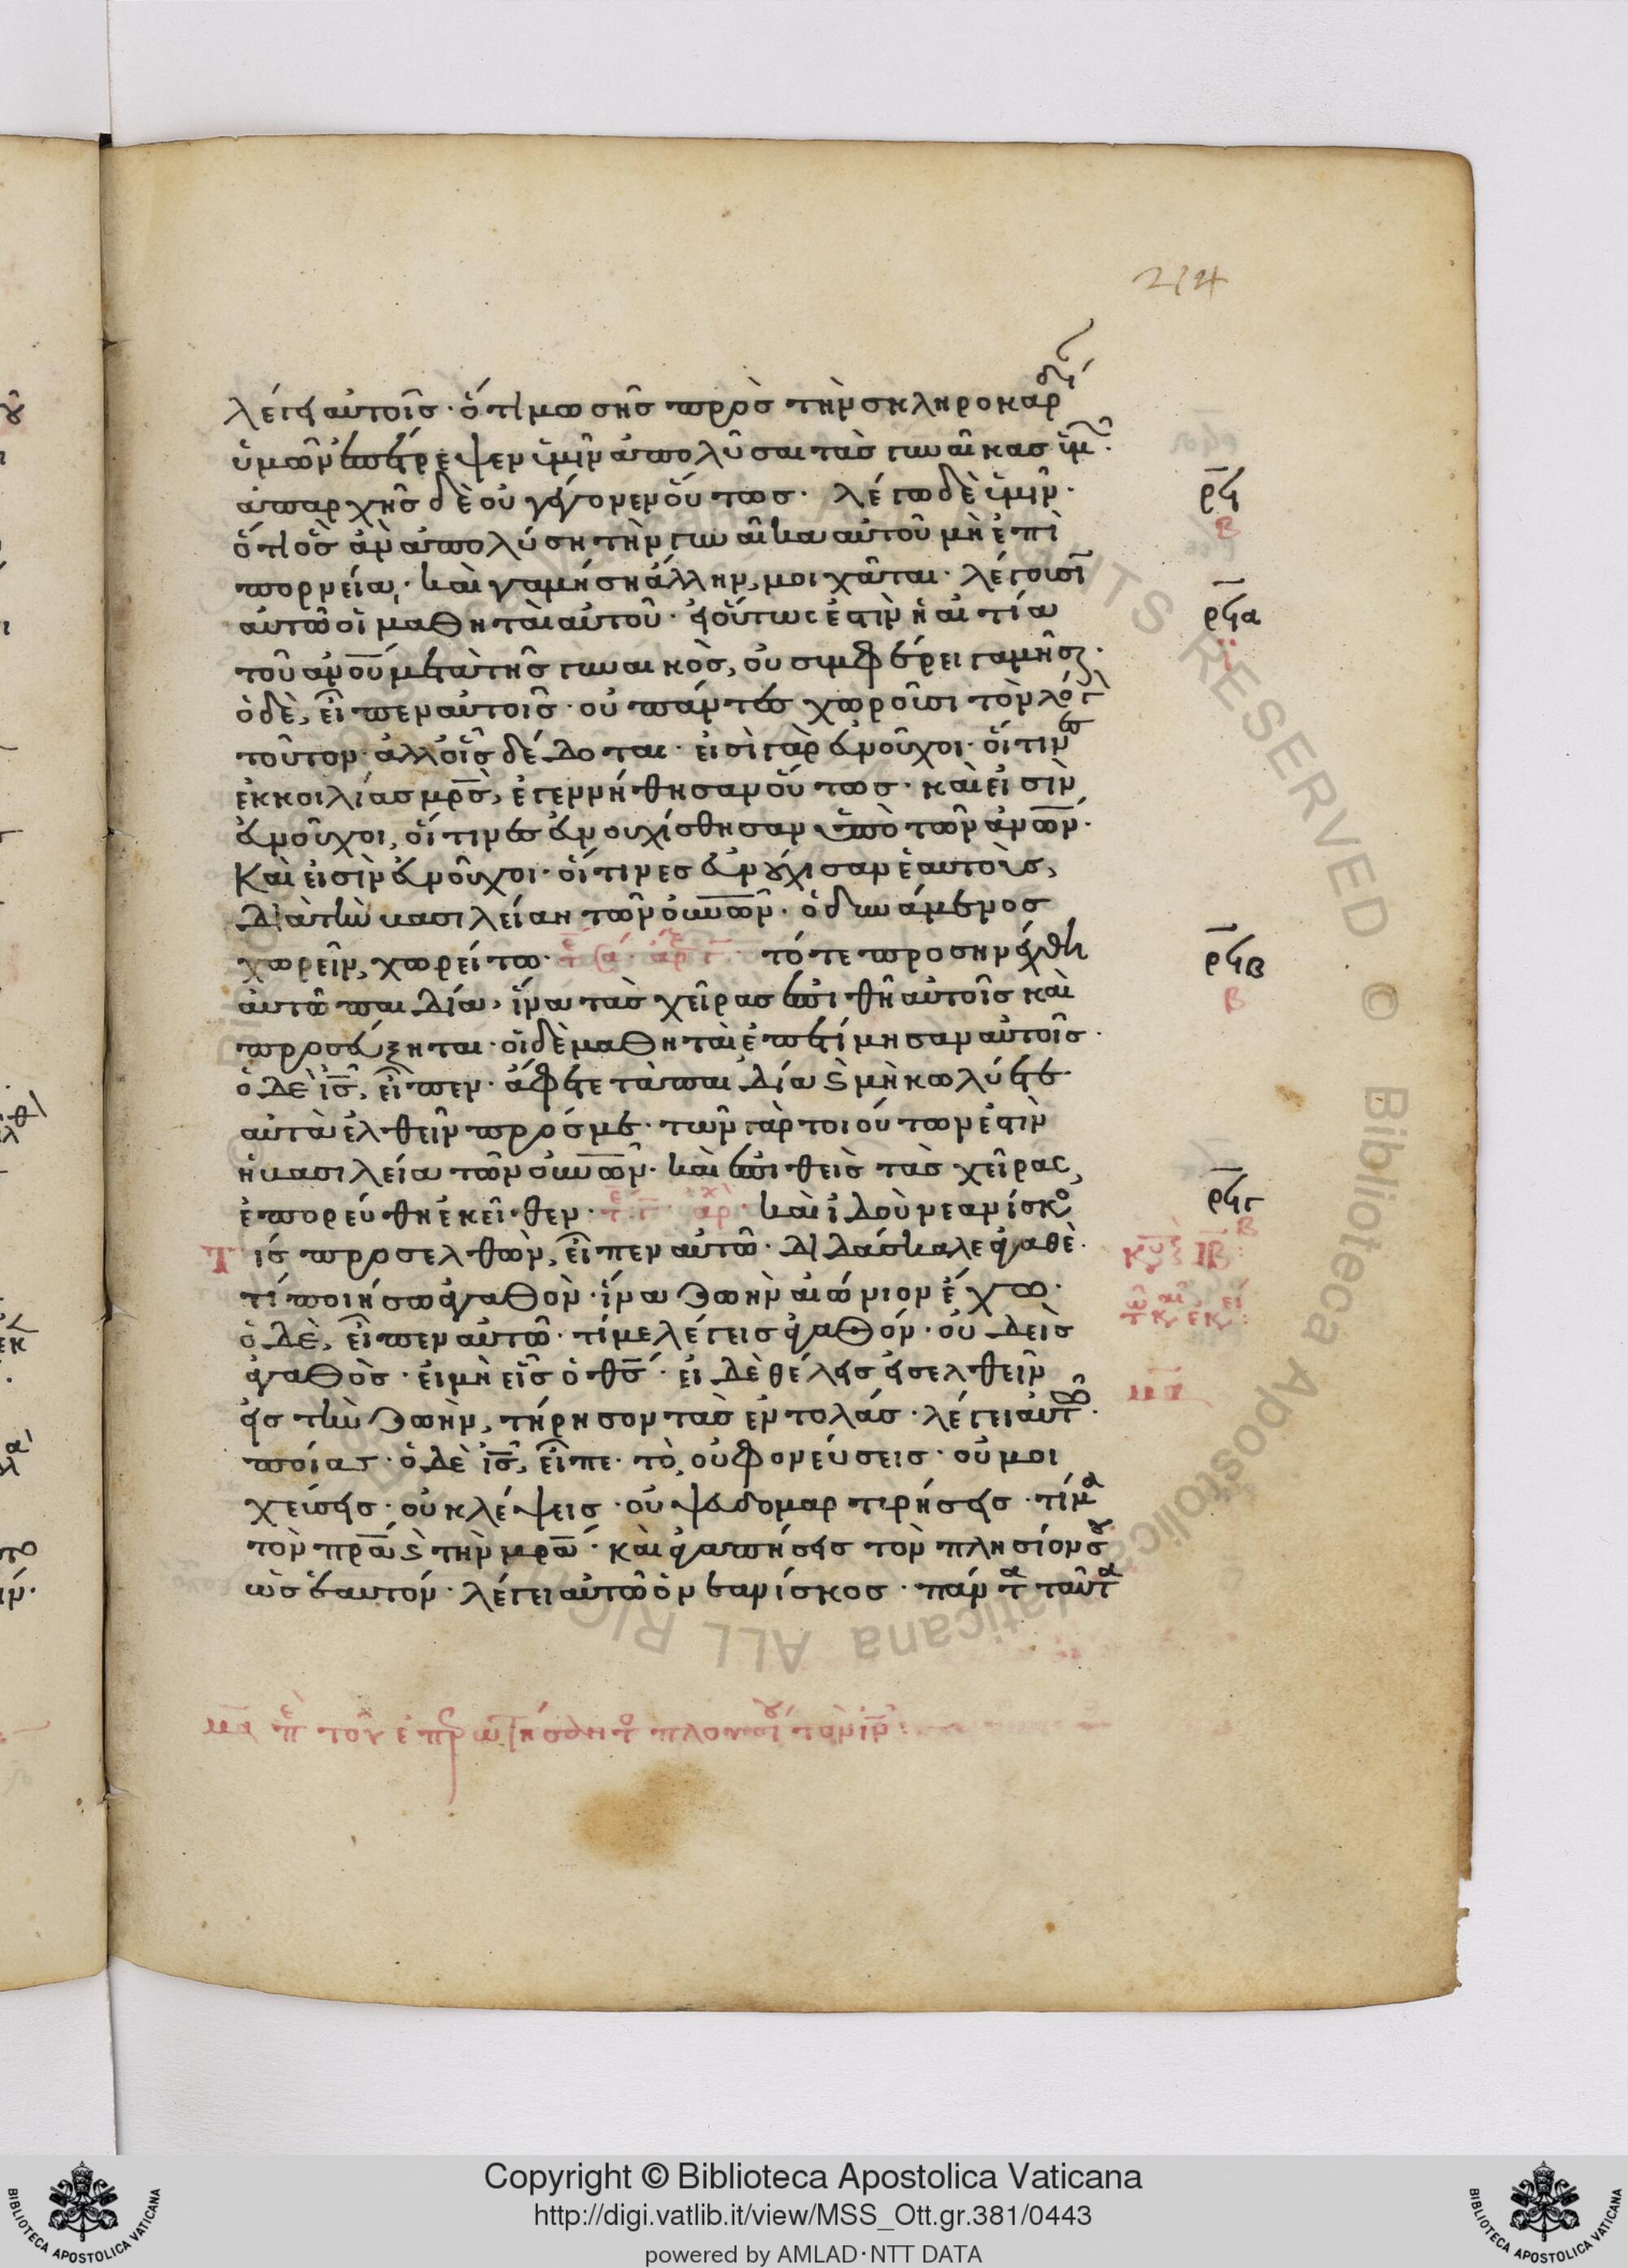 214
λέγει αὐτοῖς· ὅτι μωσῆς πρὸς τὴν σκληροκαρδί
ὑμῶν ἐπέτρεψεν ὑμῖν ἀπολῦσαι τὰς γυναῖκας ὑμ̑·
ἀπαρχῆς δὲ οὐ γέγονεν οὕτως· λέγω δὲ ὑμῖν·
ὅτι ὃς ἂν ἀπολύση τὴν γυναῖκα αὐτοῦ μὴ ἐπὶ
πορνεία, καὶ γαμήση ἄλλην, μοιχᾶται· λέγουσῑ
αὐτῶ οἱ μαθηταὶ αὐτοῦ· εἰ οὕτως ἐστὶν ἡ αἰτία
τοῦ ἀνο̅υ̅ μετὰ τῆς γυναικὸς, οὐ συμφέρει γαμῆσαι·
ὁ δὲ, εἶπεν αὐτοῖς· οὐ πάντες χωροῦσι τὸν λόγ
τοῦτον· ἀλλ οἷς δέδοται· εἰσὶ γὰρ εὐνοῦχοι· οἵτινες
ἐκ κοιλίας μρ̅ς̅, ἐγεννήθησαν οὕτως· καὶ εἰσὶν
εὐνοῦχοι, οἵτινες εὐνουχίσθησαν ὑπὸ τῶν ἀν̅ω̅ν̅·
Καὶ εἰσὶν εὐνοῦχοι· οἵτινες εὐνούχισαν ἑαυτοὺς,
διὰ τὴν βασιλείαν τῶν οὐν̅ω̅ν̅· ὁ δυνάμενος
χωρεῖν, χωρείτω· τότε προσηνέχθη
αὐτῶ παιδία, ἵνα τὰς χεῖρας ἐπιθῆ αὐτοῖς καὶ
προσεύξηται· οἱ δὲ μαθηταὶ ἐπετίμησαν αὐτοῖς·
ὁ δὲ ι̅ς̅, εἶπεν· ἄφετε τὰ παιδία ϗ μὴ κωλύετε
αὐτὰ ἐλθεῖν πρός με· τῶν γὰρ τοιούτων ἐστὶν
ἡ βασιλεία τῶν οὐν̅ω̅ν̅· καὶ ἐπιθεὶς τὰς χεῖρας,
ἐπορεύθη ἐκεῖθεν· καὶ ἰδοὺ νεανίσκο
Τ ις προσελθὼν, εἶπεν αὐτῶ· διδάσκαλε ἀγαθὲ·
τί ποιήσω ἀγαθὸν· ἵνα ζωὴν αἰώνιον ἔχω·
ὁ δὲ, εἶπεν αὐτῶ· τί με λέγεις ἀγαθόν· οὐδεὶς
ἀγαθὸς· εἰ μὴ εἷς ὁ θ̅ς̅· εἰ δὲ θέλεις εἰσελθεῖν
εἰς τὴν ζωὴν, τήρησον τὰς ἐντολάς· λέγει αὐτῶ·
ποίας· ὁ δὲ ι̅ς̅, εἶπε· τὸ, οὐ φονεύσεις· οὐ μοι
χεύσεις· οὐ κλέψεις· οὐ ψευδομαρτυρήσεις· τίμα
τὸν πρ̅α̅ ϗ τὴν μρ̅α̅· καὶ ἀγαπήσεις τὸν πλησίον σου
ὡς ἑαυτόν· λέγει αὐτῶ ὁ νεανίσκος· πάντα ταῦτα
ρϟ
β
ρϟα
ι
ρϟβ
β
ρϟγ
β
Copyright © Biblioteca Apostolica Vaticana
http://digi.vatlib.it/view/MSS_Ott.gr.381/0443
powered by AMLAD·NTT DATA
BIBLIOTECA APOSTOLICA VATICANA
BIBLIOTECA APOSTOLICA VATICANA